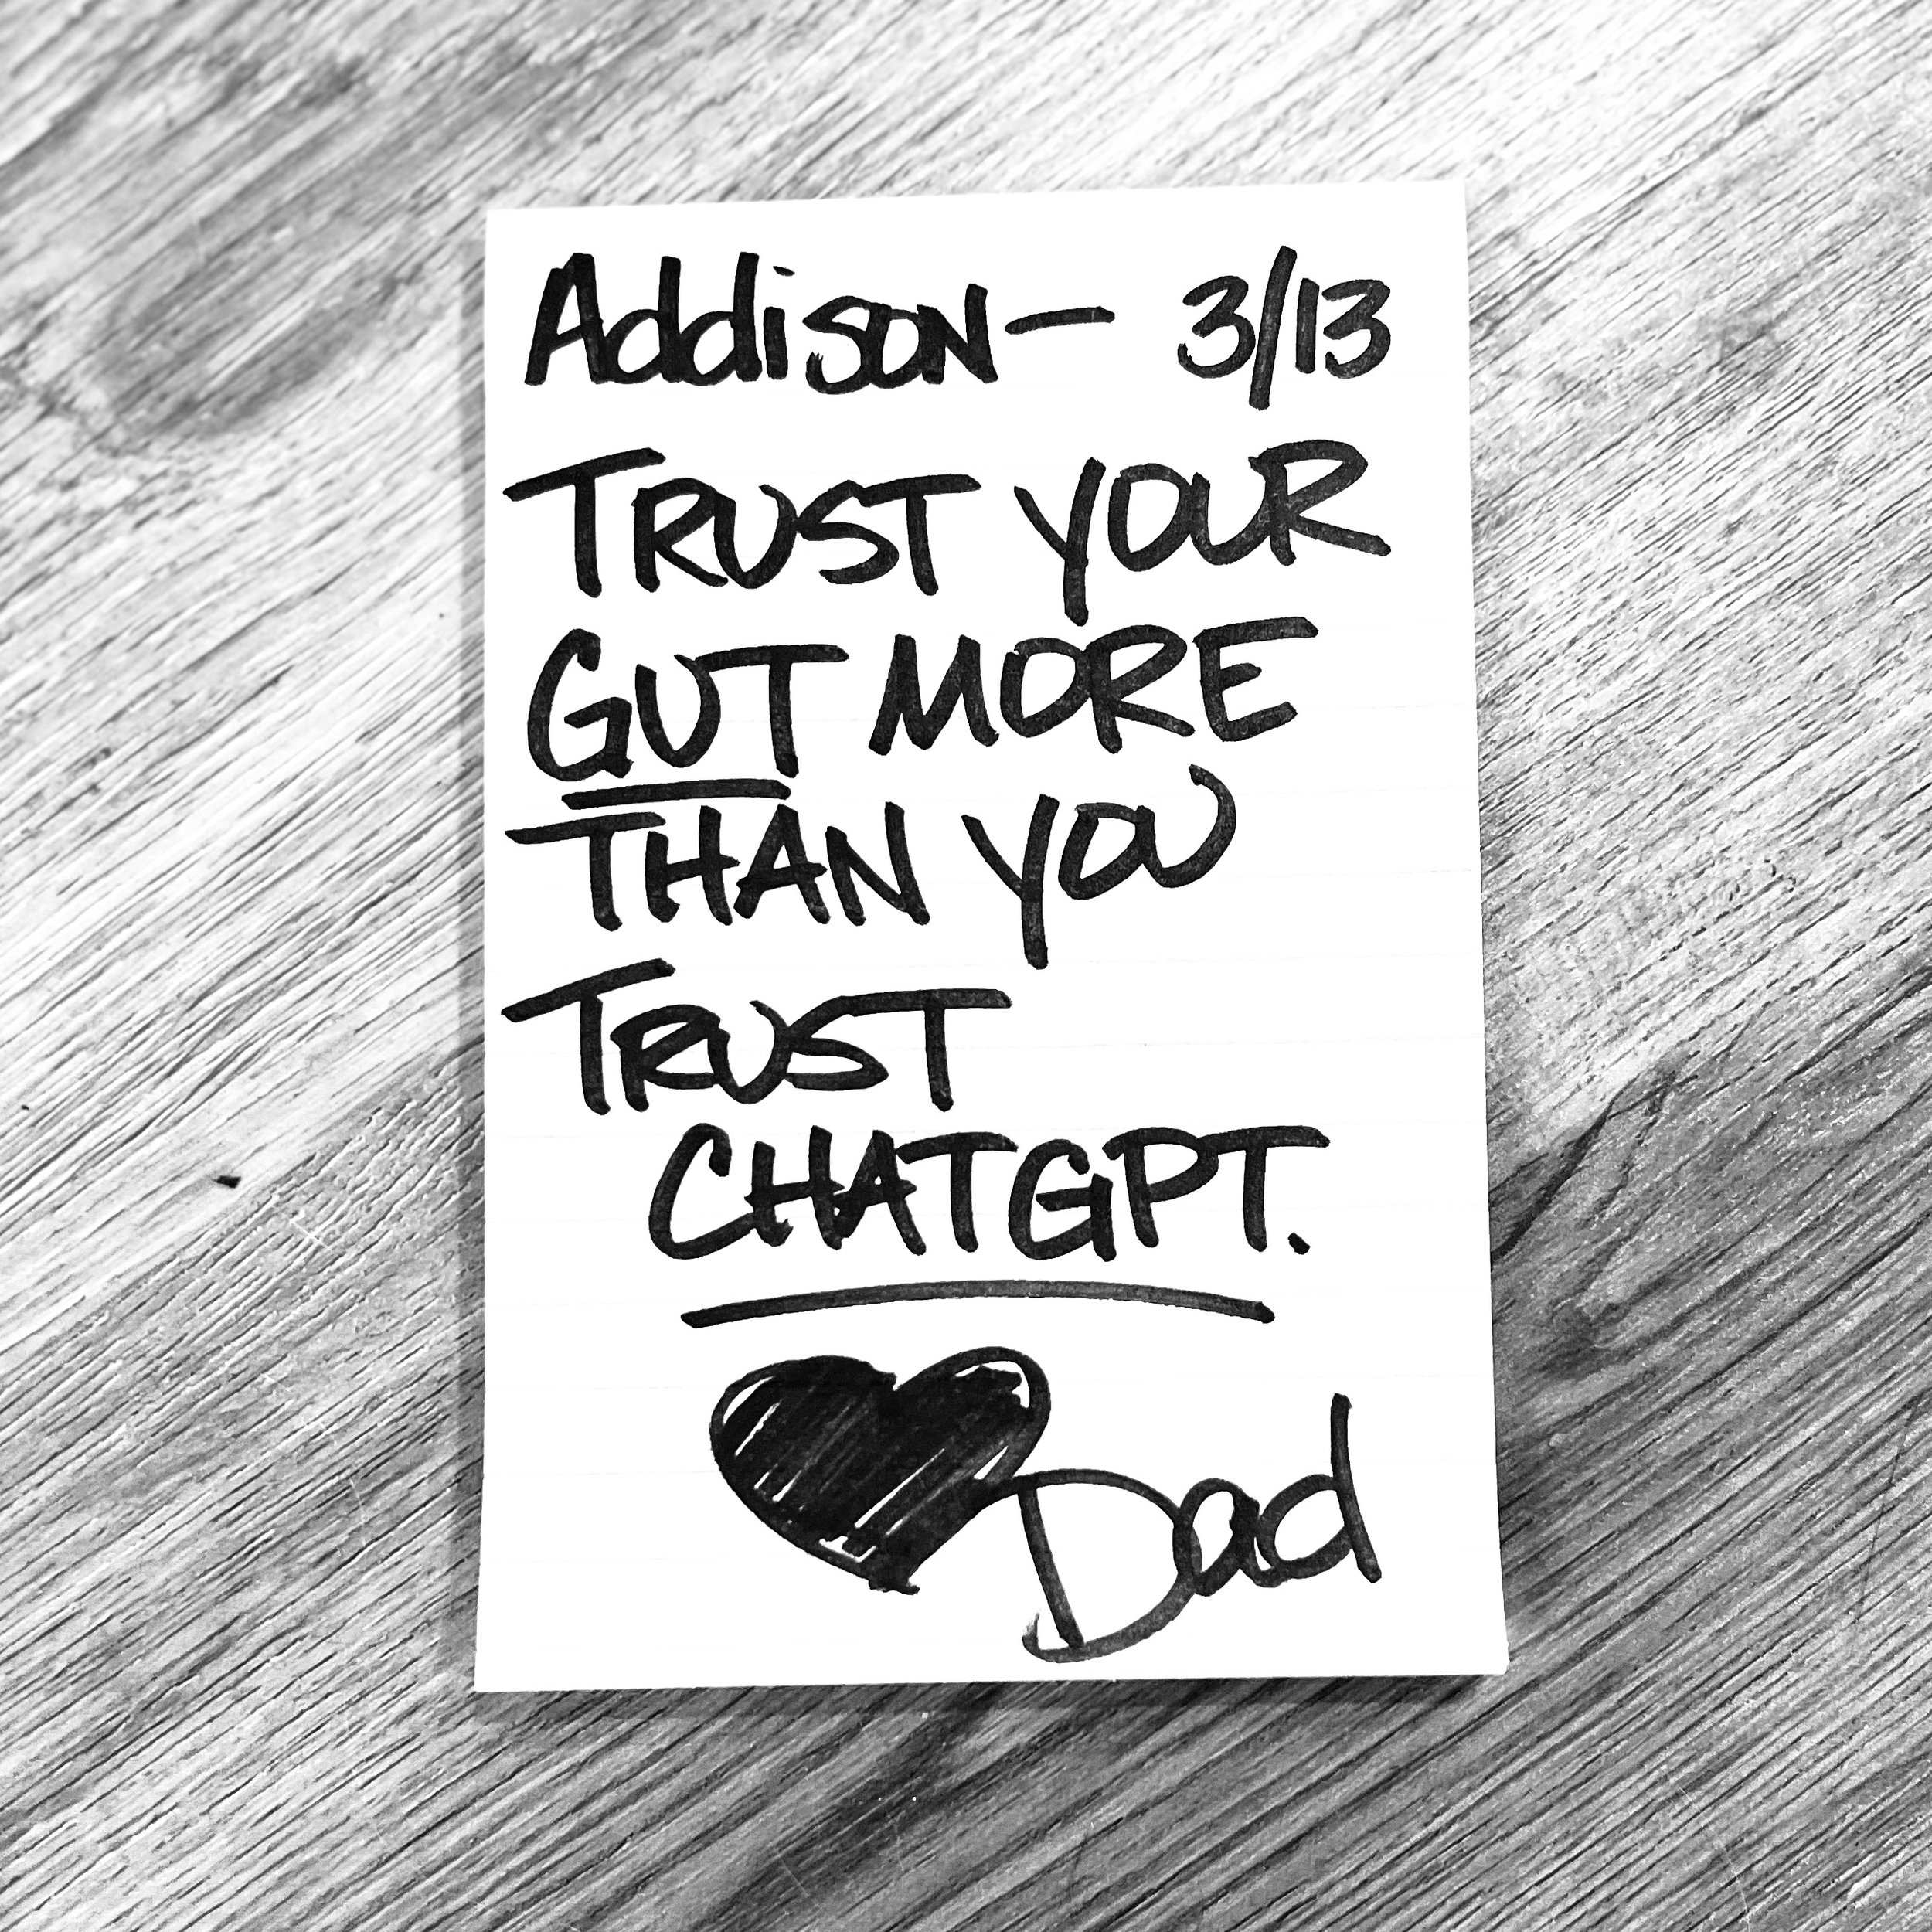 Addison— 3/13
TRUST YOUR
GUT MORE
THAN YOU
TRUST
CHATGPT.
Dad